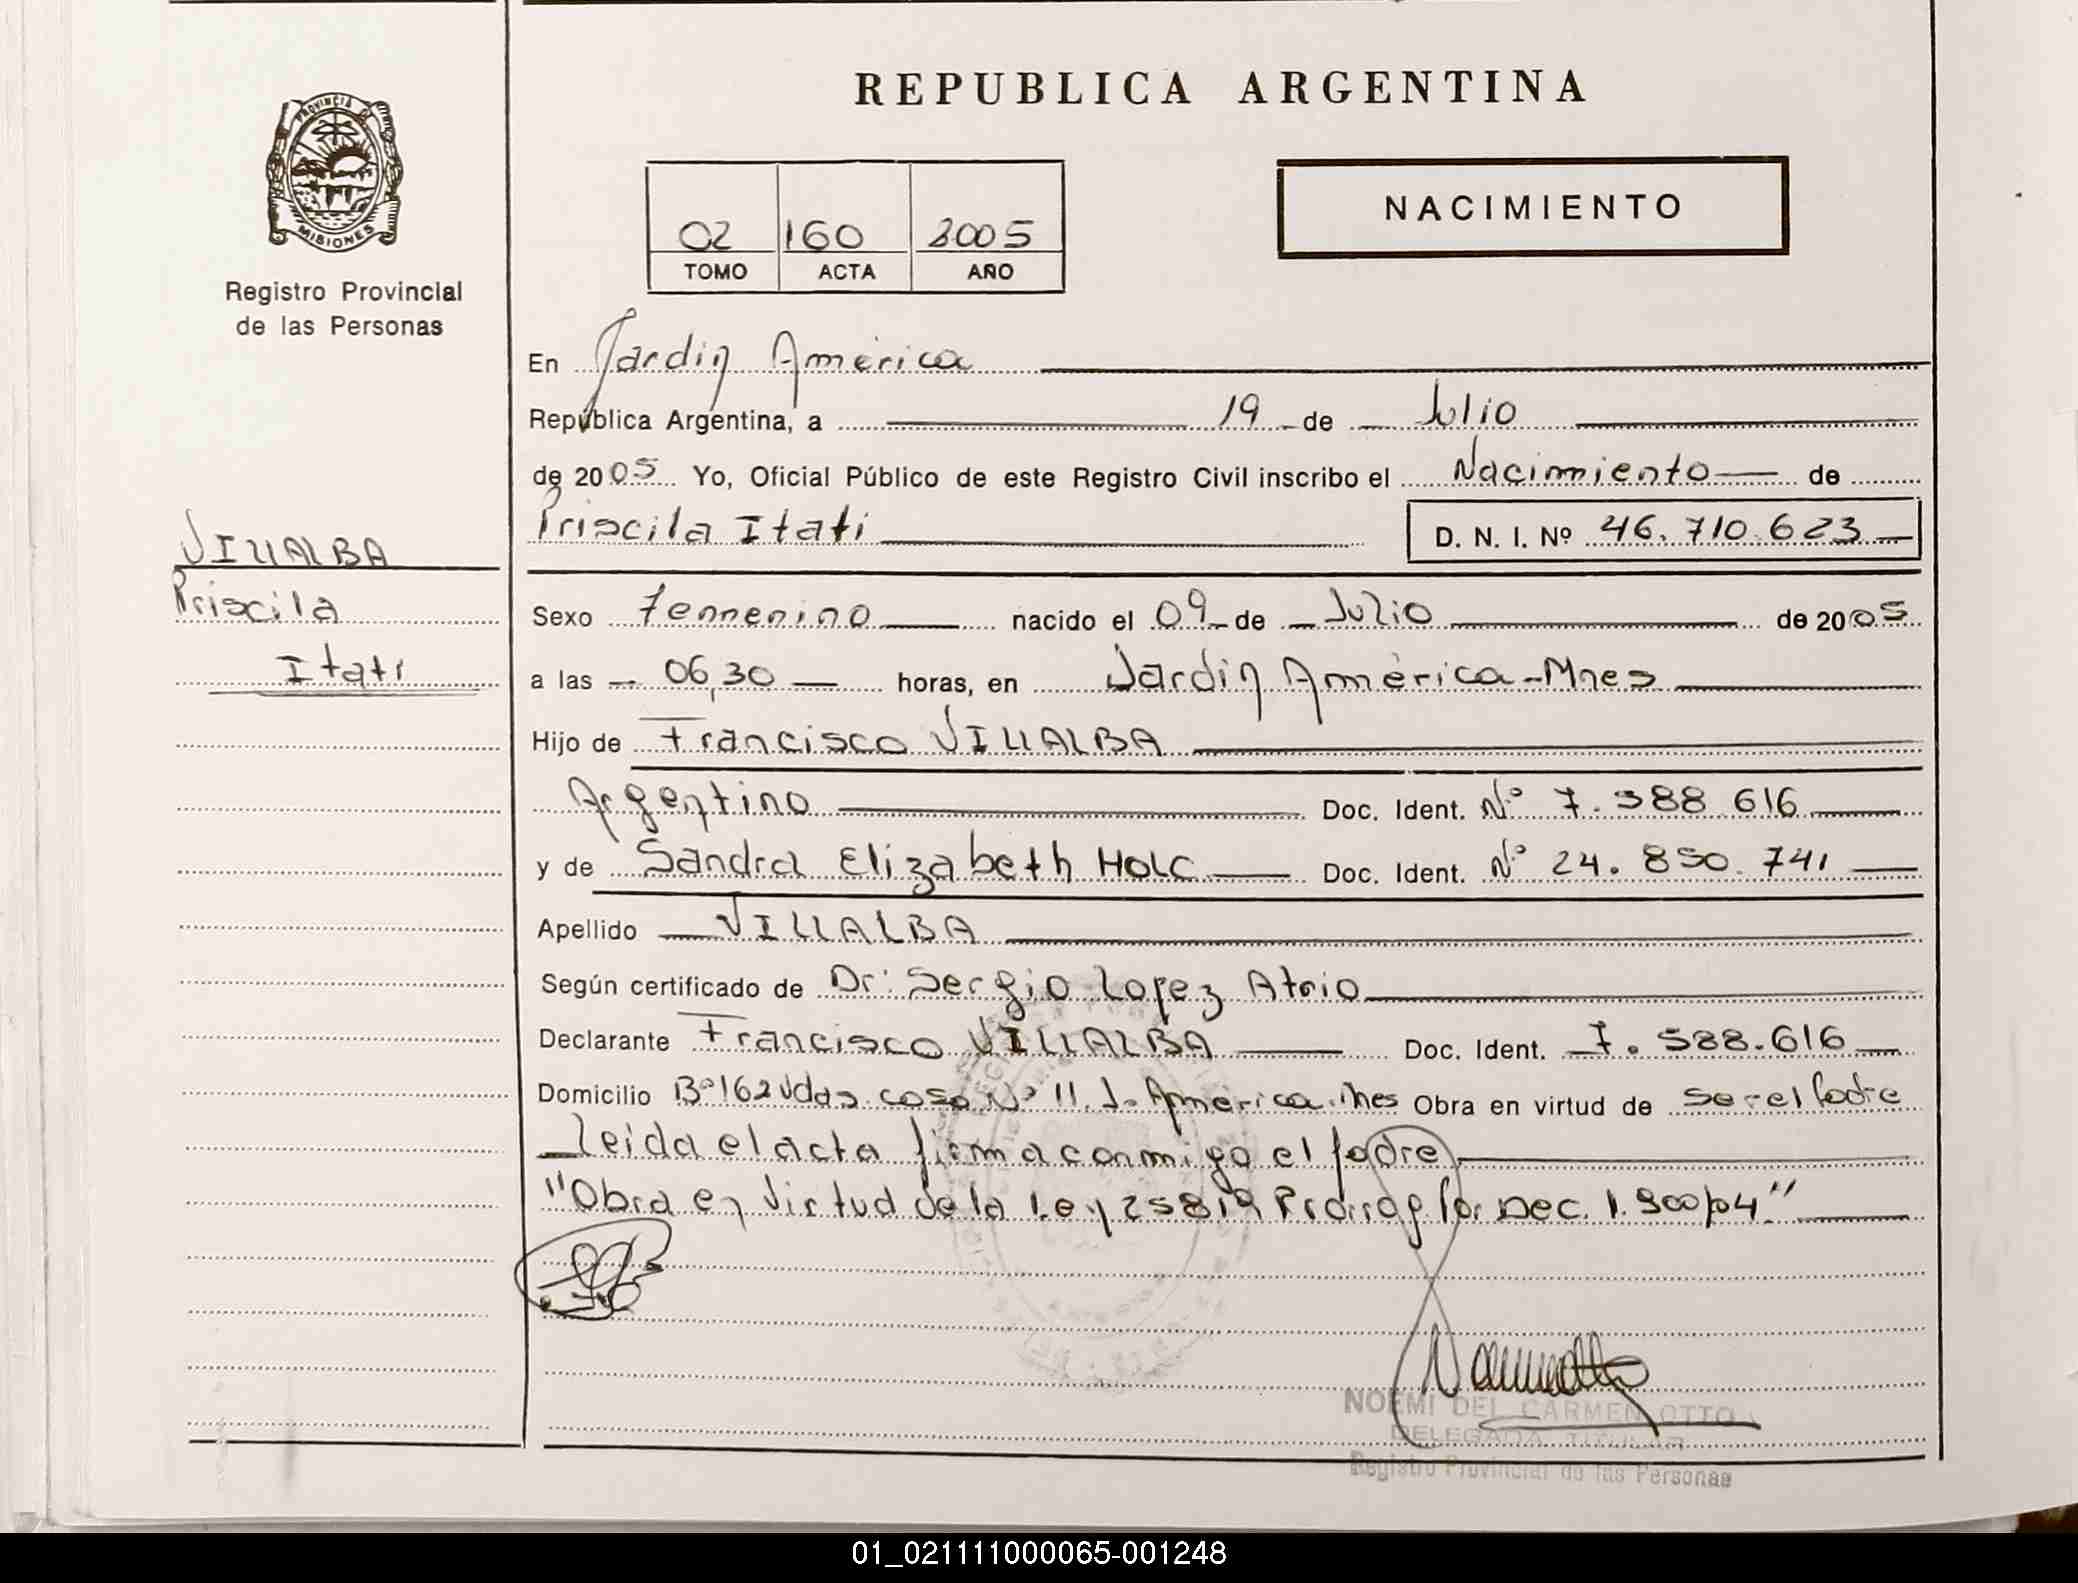 REPUBLICA ARGENTINA
PROVINCIA DE
MISIONES
Registro Provincial
de las Personas
02 160 2005
TOMO ACTA AÑO
NACIMIENTO
En Jardín América
República Argentina, a 19 de Julio
de 2005 Yo, Oficial Público de este Registro Civil inscribo el Nacimiento de
Priscila Itati D. N. I. Nº 46.710.623
VILLALBA
Priscila
Itati
Sexo Femenino nacido el 09 de Julio de 2005
a las 06,30 horas, en Jardín América-Mnes
Hijo de Francisco VILLALBA
Argentino Doc. Ident. Nº 7.588.616
y de Sandra Elizabeth HOLC Doc. Ident. Nº 24.850.741
Apellido VILLALBA
Según certificado de Dr: Sergio Lopez Atrio
Declarante Francisco VILLALBA Doc. Ident. 7.588.616
Domicilio Bº 162 Vdas casa Nº 11 J. América. Mnes Obra en virtud de ser el Padre
Leida el acta firma conmigo el padre
"Obra en Virtud de la Ley 25819 Prorrog por Dec. 1.900/04"
NOEMI DEL CARMEN OTTO
DELEGADA TITULAR
Registro Provincial de las Personas
01_021111000065-001248